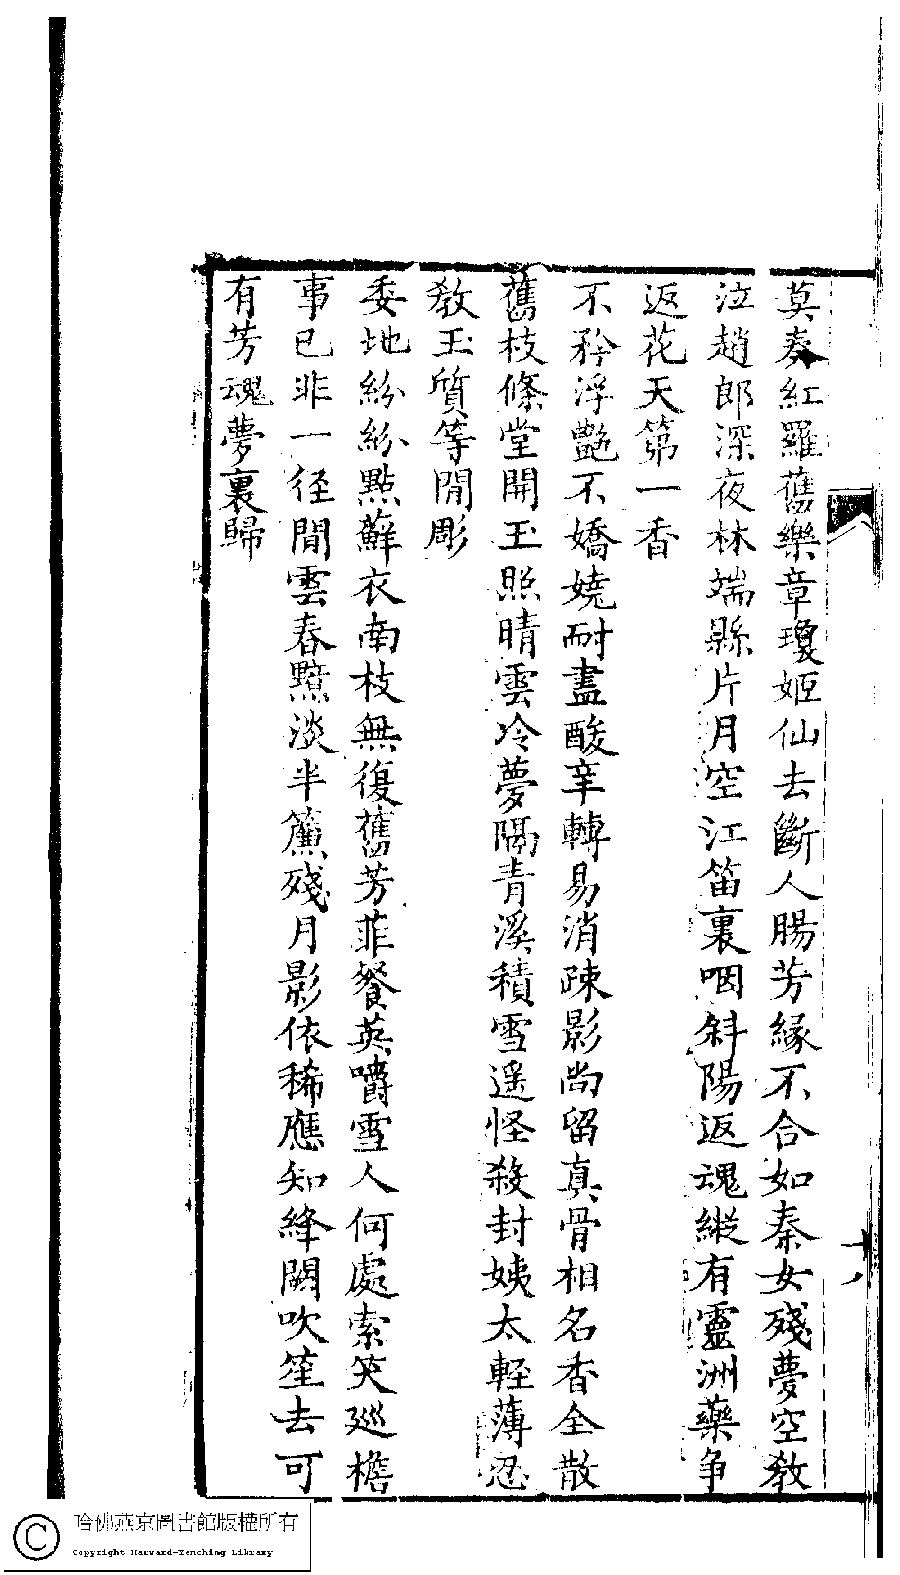 莫奏紅羅舊樂章瓊姬仙去斷人腸芳緣不合如秦女殘夢空教
泣趙郎深夜林端縣片月空江笛裏咽斜陽返魂縱有靈洲藥爭
返花天第一香
不矜浮艷不嬌嬈耐盡酸辛轉易消疎影尚留真骨相名香全散
舊枝條堂開玉照晴雲冷夢隔青溪積雪遥怪殺封姨太輕薄忍
教玉質等閒彫
委地紛紛點蘚衣南枝無復舊芳菲餐英嚼雪人何處索笑廵檐
事已非一径閒雲春黯淡半簾殘月影依稀應知絳闕吹笙去可
有芳魂夢裏歸
十八
哈佛燕京圖書館版權所有
Copyright Harvard-Yenching Library